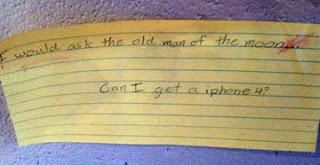 I would ask the old man of the moon...
Can I get a iphone 4?